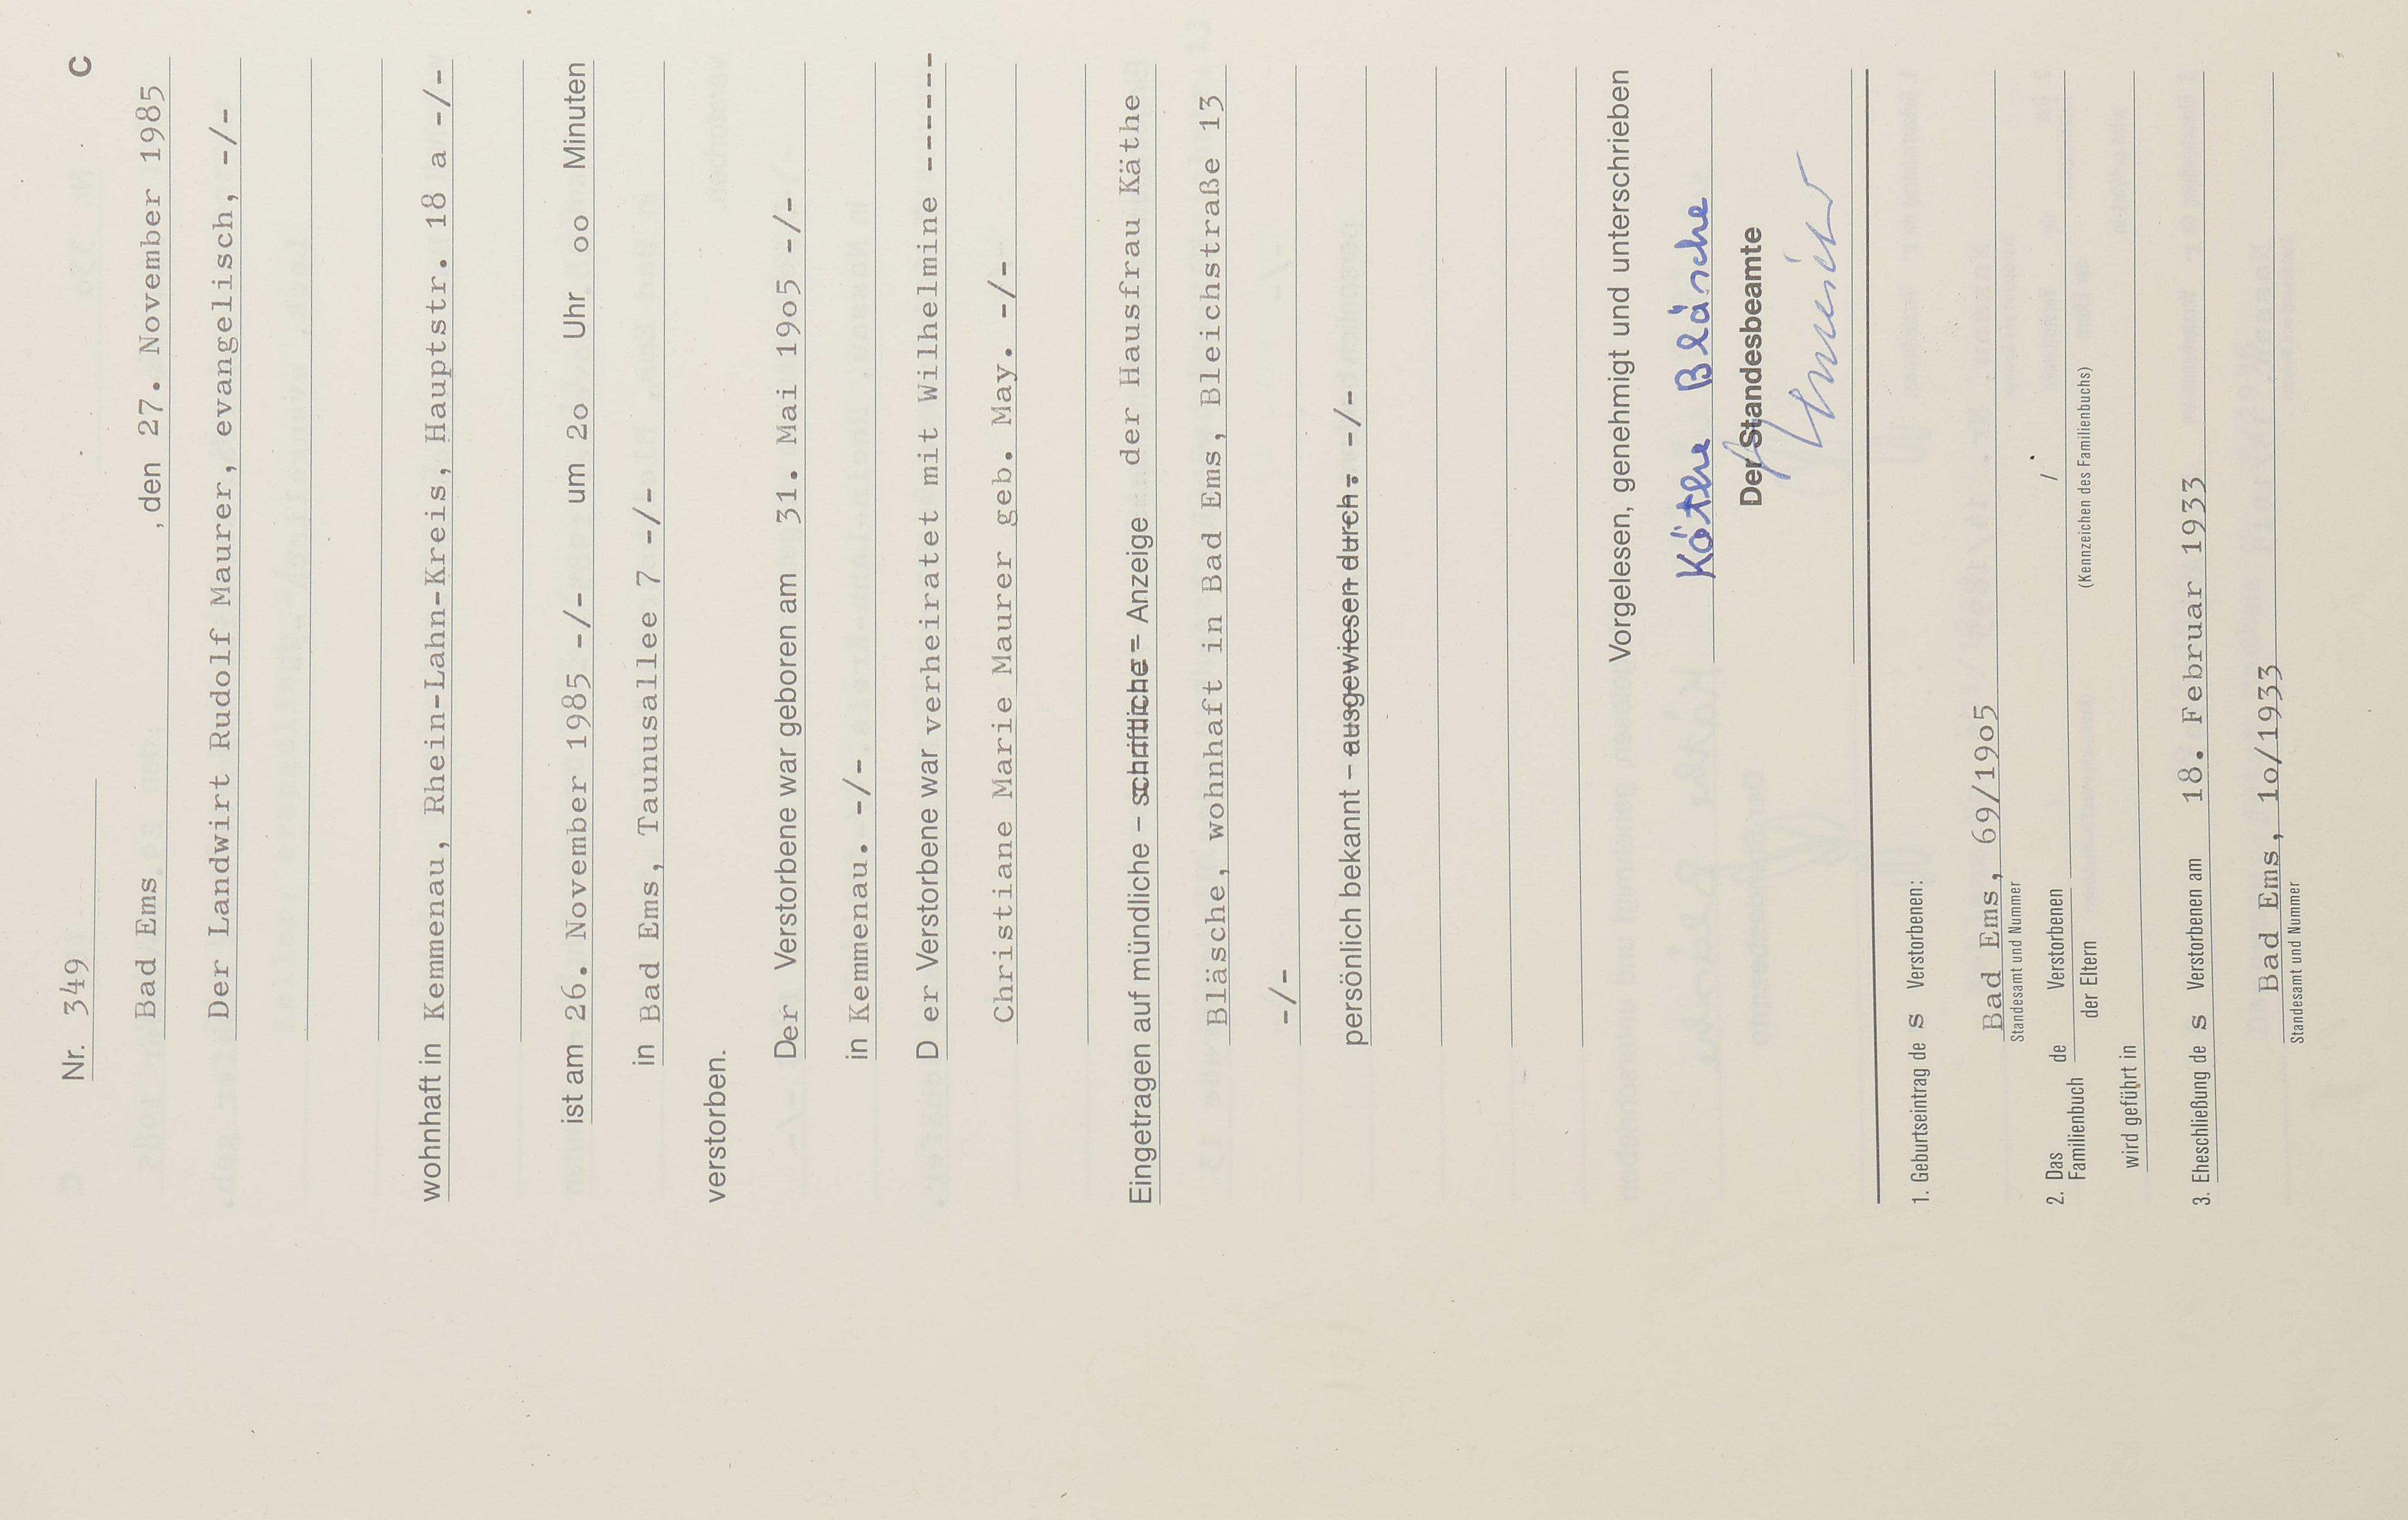 Nr. 349 C
Bad Ems , den 27. November 1985
Der Landwirt Rudolf Maurer, evangelisch, -/-
wohnhaft in Kemmenau, Rhein-Lahn-Kreis, Hauptstr. 18 a -/-
ist am 26. November 1985 -/- um 2o Uhr oo Minuten
in Bad Ems, Taunusallee 7 -/-
verstorben.
Der Verstorbene war geboren am 31. Mai 19o5 -/-
in Kemmenau. -/-
D er Verstorbene war verheiratet mit Wilhelmine ------
Christiane Marie Maurer geb. May. -/-
Eingetragen auf mündliche – schriftliche – Anzeige der Hausfrau Käthe
Bläsche, wohnhaft in Bad Ems, Bleichstraße 13
-/-
persönlich bekannt – ausgewiesen durch. -/-
Vorgelesen, genehmigt und unterschrieben
Käthe Bläsche
Der Standesbeamte
1. Geburtseintrag de s Verstorbenen:
Bad Ems, 69/19o5
Standesamt und Nummer
2. Das Familienbuch de Verstorbenen /
der Eltern (Kennzeichen des Familienbuchs)
wird geführt in
3. Eheschließung de s Verstorbenen am 18. Februar 1933
Bad Ems, 1o/1933
Standesamt und Nummer